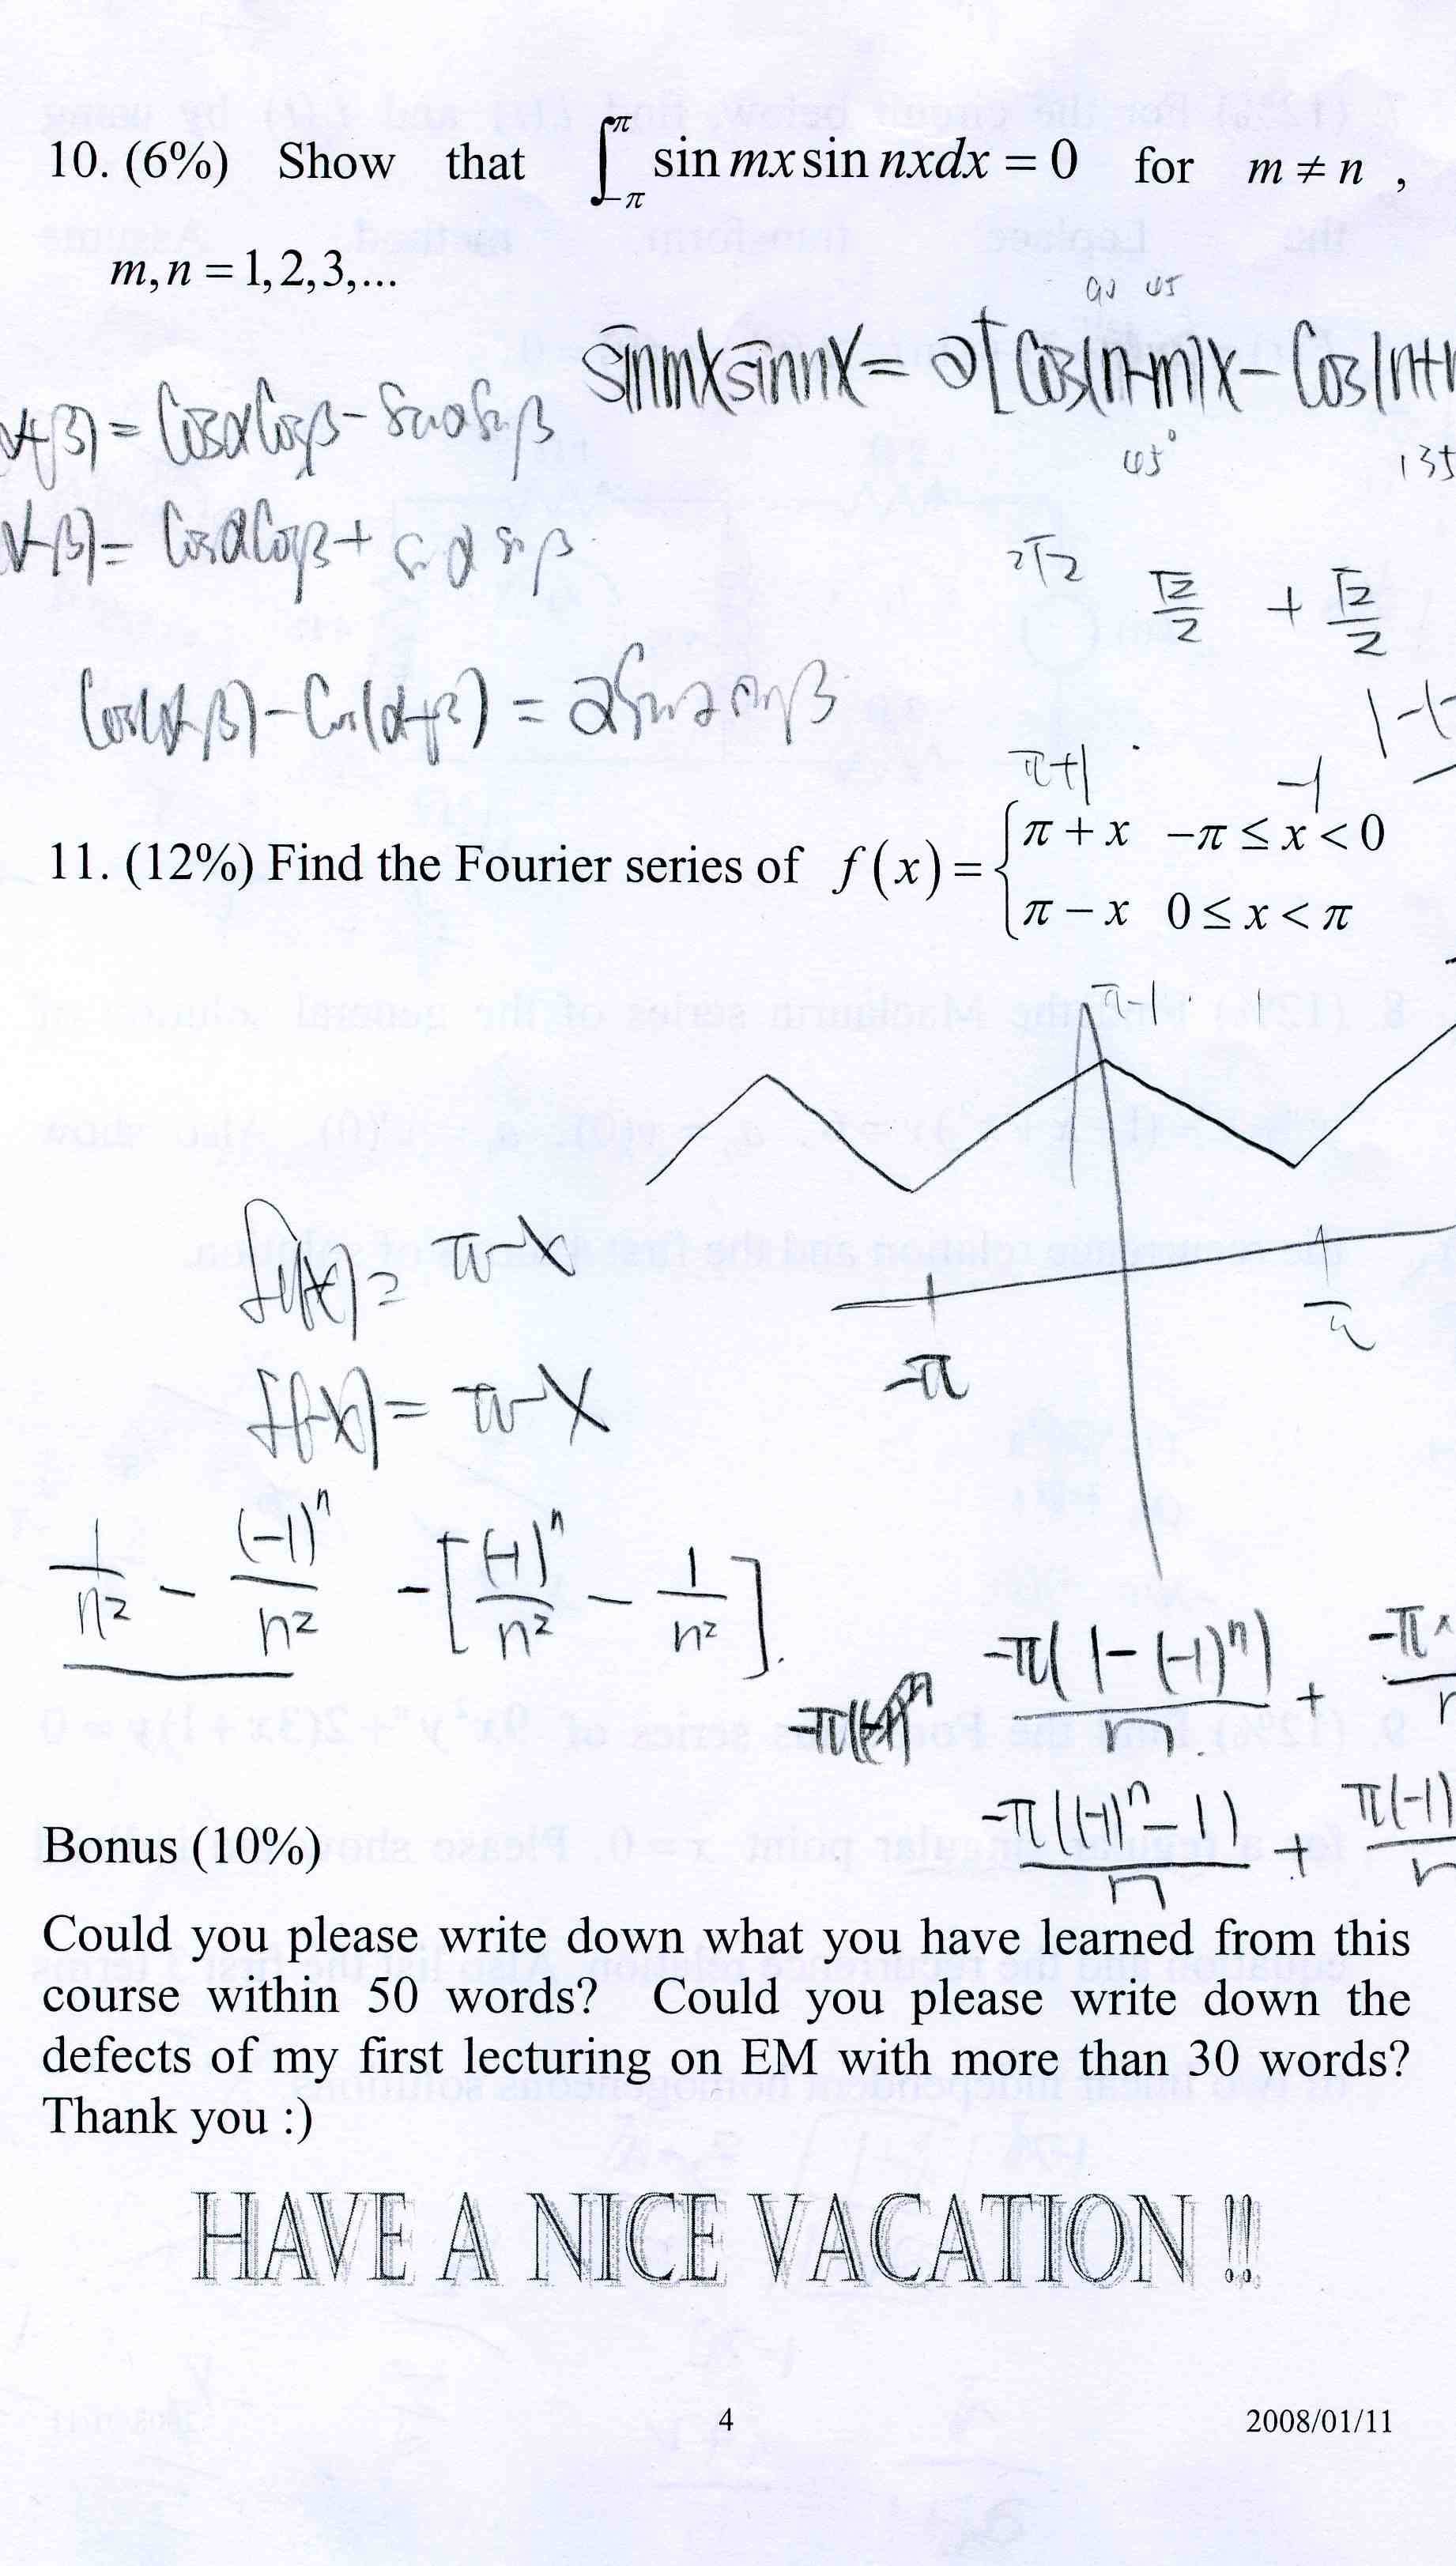 10. (6%) Show that ∫_{-π}^{π} sin mx sin nxdx = 0 for m ≠ n ,
m, n = 1, 2, 3,...
90 45
sinmxsinnx = 2[Cos(n-m)x - Cos(n+
45° 135
+β) = CosαCosβ - SinαSinβ
-β) = CosαCosβ + sinα sinβ
√2/2 + √2/2
Cos(α-β) - Cos(α+β) = 2Sinα Sinβ
π+1 -1
11. (12%) Find the Fourier series of f(x) = { π + x -π ≤ x < 0
π - x 0 ≤ x < π
π-1
f(x) = π-x
f(-x) = π-x
-π π
1/n² - (-1)ⁿ/n² - [(-1)ⁿ/n² - 1/n²].
-π(1-(-1)ⁿ)/n +
-π((-1)ⁿ-1)/n + π(-1)
Bonus (10%)
Could you please write down what you have learned from this
course within 50 words? Could you please write down the
defects of my first lecturing on EM with more than 30 words?
Thank you :)
HAVE A NICE VACATION !!
4 2008/01/11